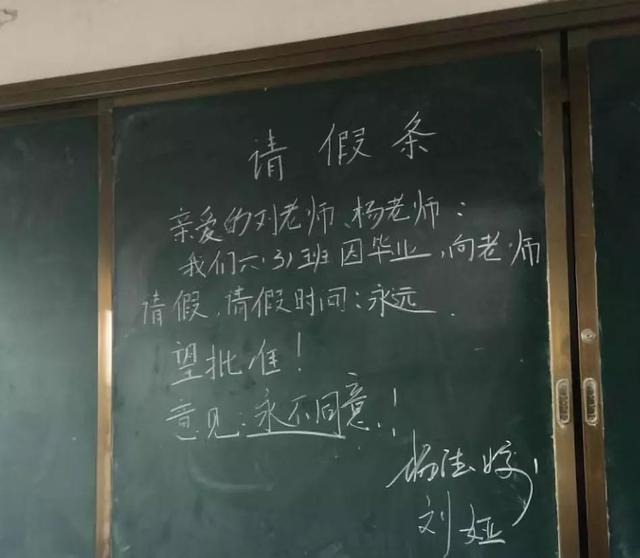 请假条
亲爱的刘老师、杨老师：
我们六(3)班因毕业，向老师
请假，请假时间：永远.
望批准！
意见：永不同意！
刘娅